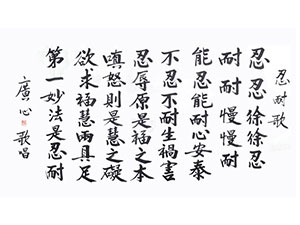 忍耐歌
忍忍徐徐忍
耐耐慢慢耐
能忍能耐心安泰
不忍不耐生禍害
忍辱原是福之本
嗔怒則是慧之礙
欲求福慧兩具足
第一妙法是忍耐
廣心 歌唱